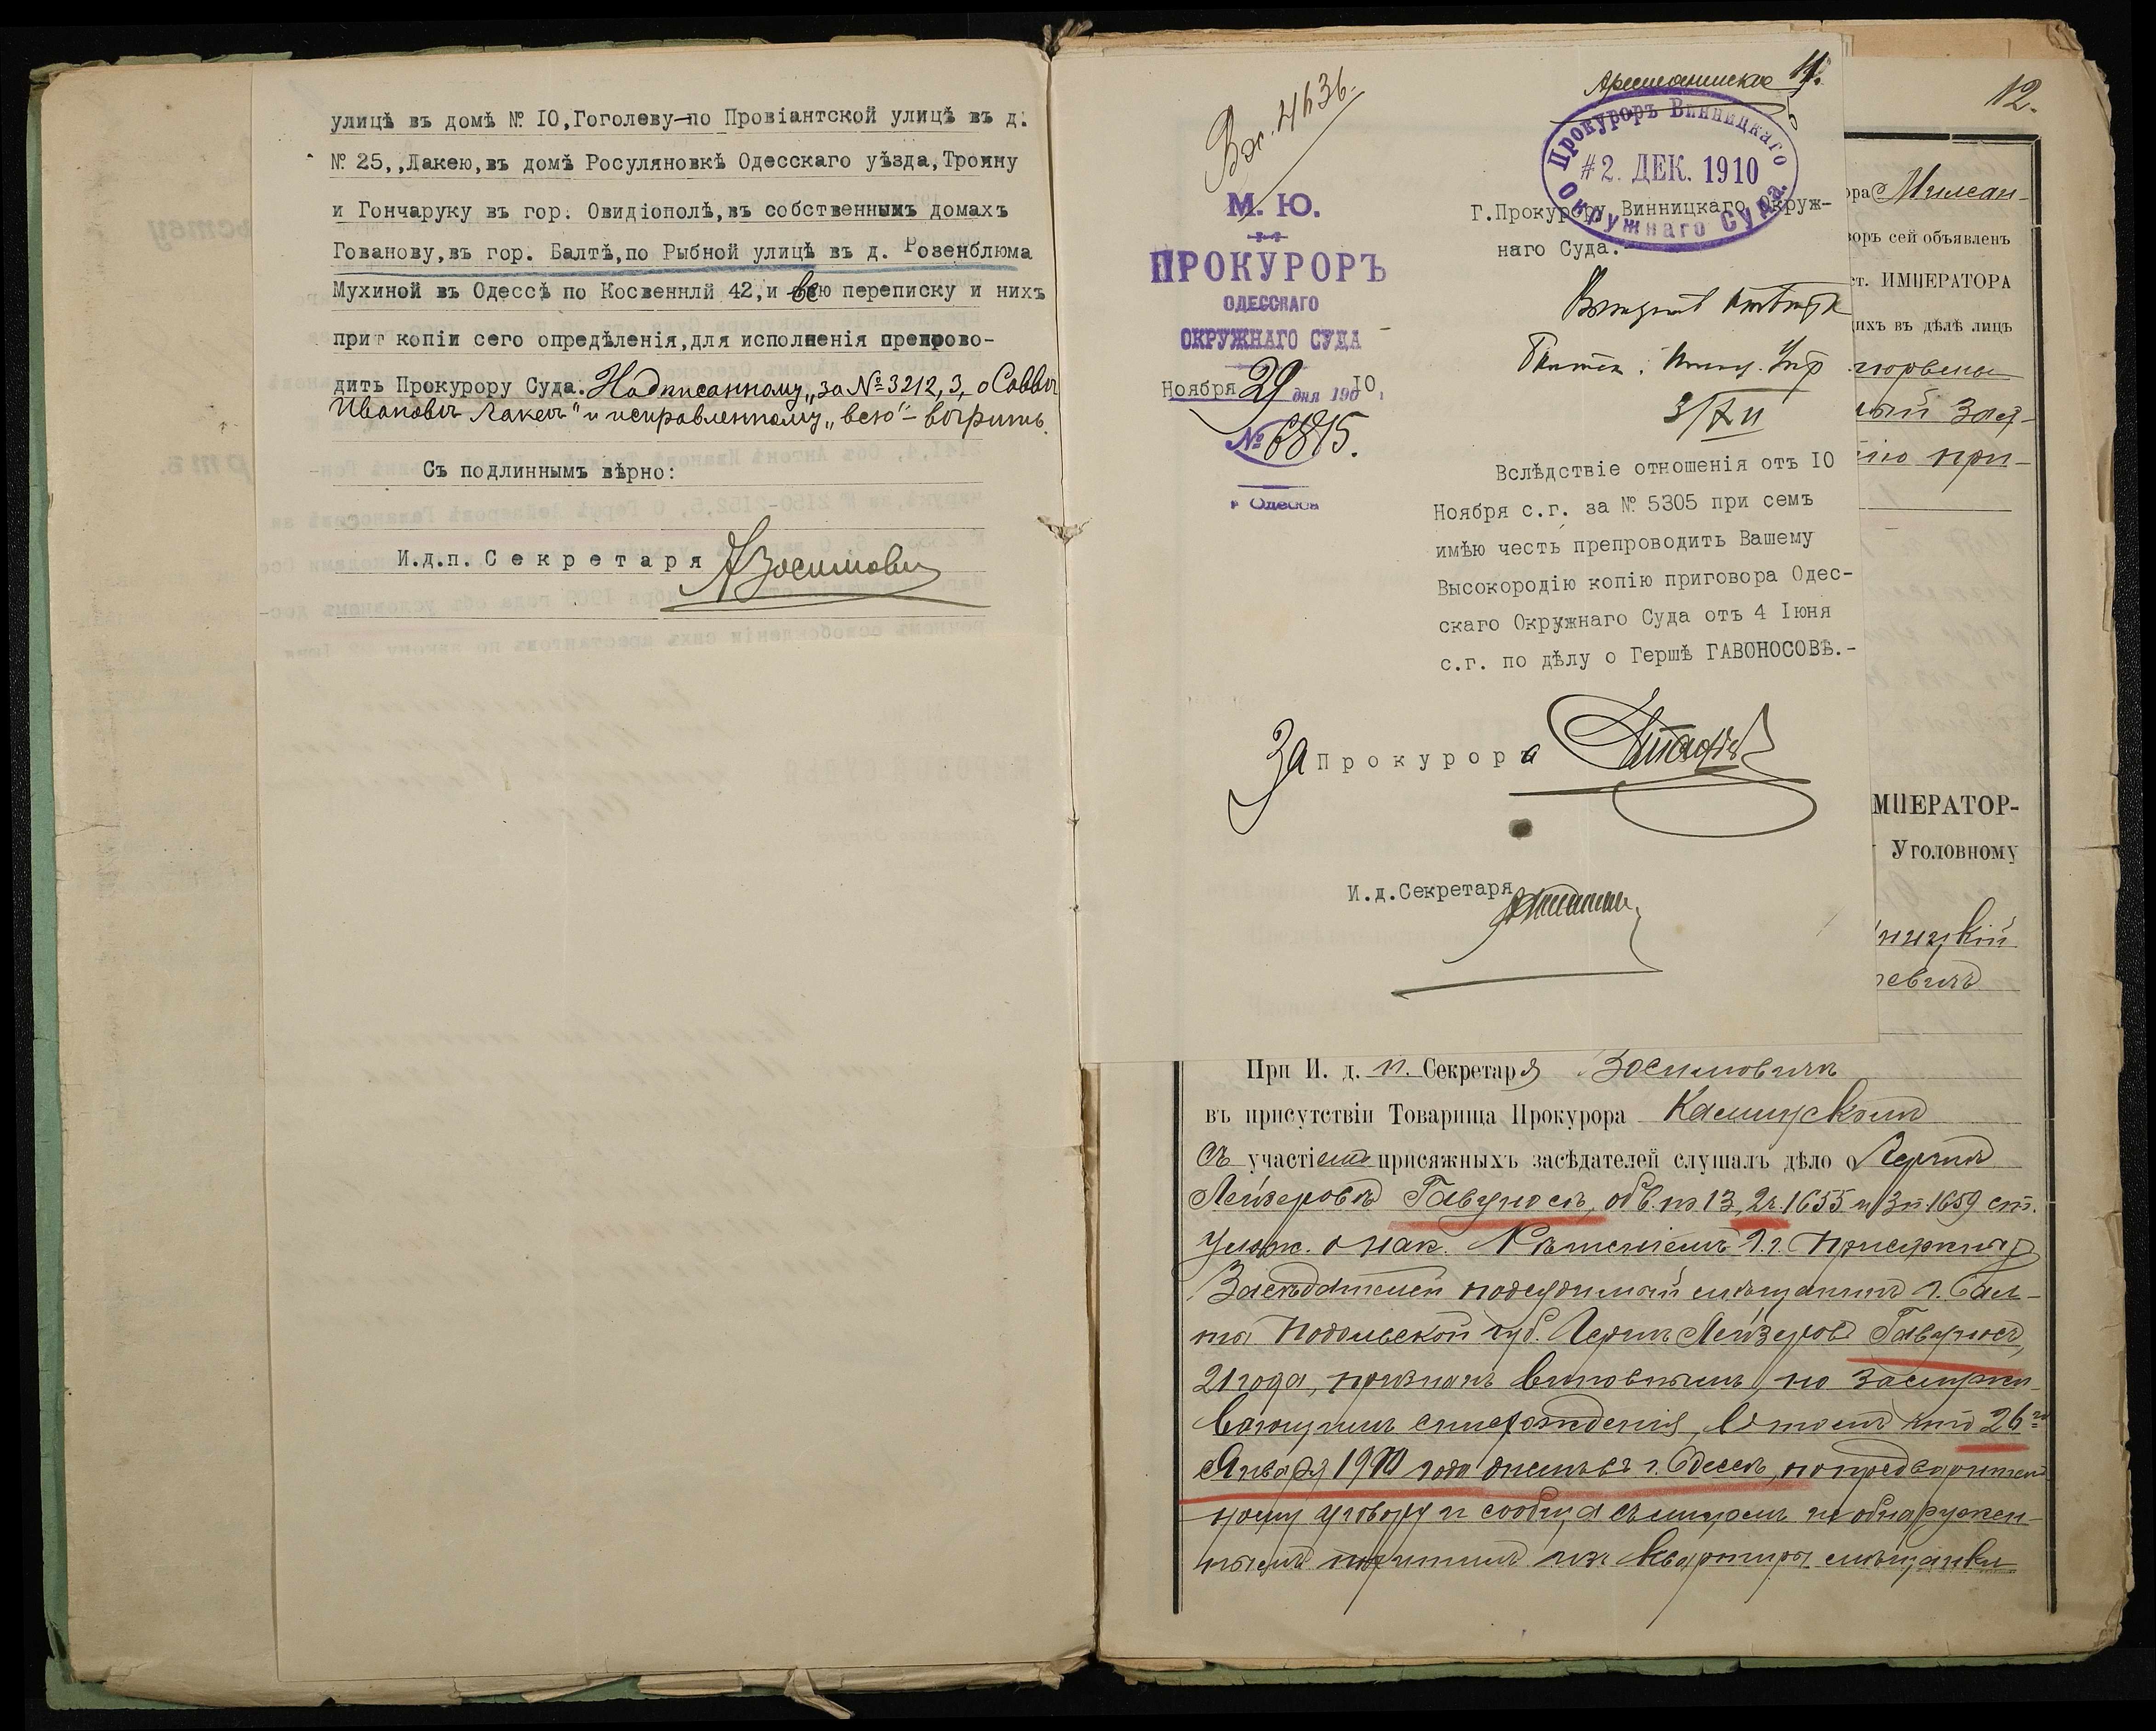 улицѣ въ домѣ № 10, Гоголеву-по Провіантской улицѣ въ д.
№ 25,,Лакею, въ домѣ Росуляновкѣ Одесскаго уѣзда, Трояну
и Гончаруку въ гор. Овидіополѣ, въ собственныхъ домахъ
Гованову, въ гор. Балтѣ, по Рыбной улицѣ въ д. Розенблюма
Мухиной въ Одессѣ по Косвеннлй 42, и всю переписку и нихъ
прит копіи сего опредѣленія, для исполненія препрово-
дить Прокурору Суда. Надписанному „за № 3212,3, о Саввѣ
Ивановѣ Лакеѣ" и исправленному „всю" – вѣрить.
Съ подлиннымъ вѣрно:
И.д.п. Секретаря
4636.
М. Ю.
ПРОКУРОРЪ
ОДЕССКАГО
ОКРУЖНАГО СУДА
Ноября 29 дня 1910
№ 6815.
г. Одесса
11.
Прокуроръ Винницкаго
#2. ДЕК. 1910
Окружнаго Суда.
Г.Прокурору Винницкаго Окруж-
наго Суда.-
3/XII
Вслѣдствіе отношенія отъ 10
Ноября с.г. за № 5305 при семъ
имѣю честь препроводить Вашему
Высокородію копію приговора Одес-
скаго Окружнаго Суда отъ 4 Іюня
с.г. по дѣлу о Гершѣ ГАВОНОСОВѢ.-
За Прокурора
И.д.Секретаря
12.
ора
воръ сей объявленъ
ст. ИМПЕРАТОРА
ихъ въ дѣлѣ лицъ
при-
МПЕРАТОР-
Уголовному
ницкій
евичъ
При И. д. п. Секретаря Зосимовичѣ
въ присутствіи Товарища Прокурора
съ участіемъ присяжныхъ засѣдателей слушалъ дѣло о Гершѣ
Лейзеровѣ Гавуносѣ, обв. по 13, 2ч. 1655 и 3п. 1659 ст.
Улож. о нак. Рѣшеніемъ г.г. Присяжныхъ
Засѣдателей подсудимый мѣщанинъ г. Бал-
та Подольской губ. Гершъ Лейзеровъ Гавуносъ,
21 года, признанъ виновнымъ, но заслужи-
вающимъ снисхожденія, въ томъ что 26го
Января 1910 года днемъ въ г. Одессѣ, по предваритель-
ному уговору и сообща съ лицомъ не обнаружен-
нымъ похитилъ изъ квартиры мѣщанки